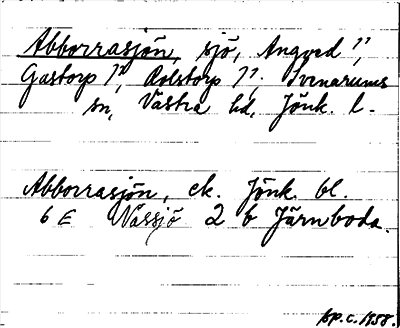 Abborrasjön, sjö, Angved 1¹,
Gastorp 1², Rolstorp 1¹; Svenarums
sn, Västra hd, Jönk. l.
Abborrasjön, ek. Jönk. bl.
6 E Nässjö 2 b Järnboda.
1958.